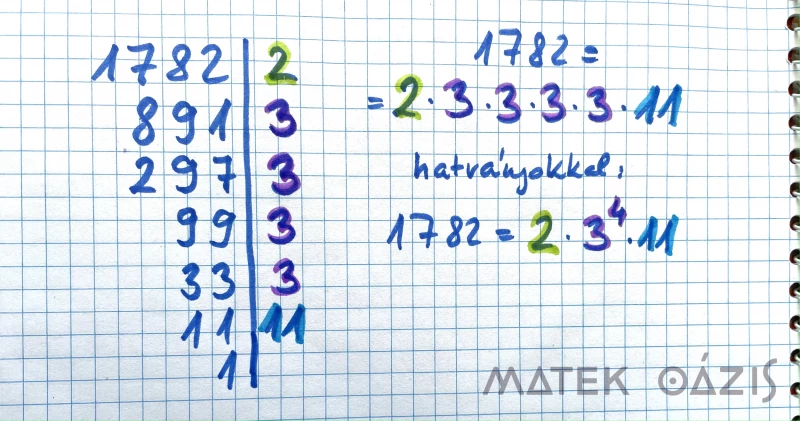 1782 | 2
891 | 3
297 | 3
99 | 3
33 | 3
11 | 11
1 |
1782 =
= 2 · 3 · 3 · 3 · 3 · 11
hatványokkal:
1782 = 2 · 3⁴ · 11
MATEK OÁZIS